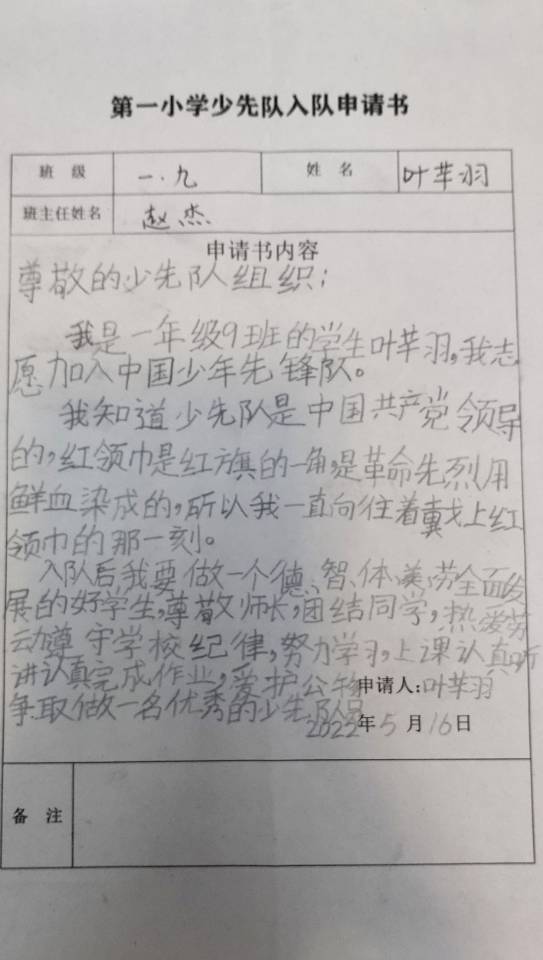 第一小学少先队入队申请书
班 级 一.九 姓 名 叶芊羽
班主任姓名 赵杰
申请书内容
尊敬的少先队组织：
我是一年级9班的学生叶芊羽，我志
愿加入中国少年先锋队。
我知道少先队是中国共产党领导
的，红领巾是红旗的一角，是革命先烈用
鲜血染成的，所以我一直向往着戴上红
领巾的那一刻。
入队后我要做一个德、智、体、美、劳全面发
展的好学生，尊敬师长，团结同学，热爱劳
动遵守学校纪律，努力学习，上课认真听
讲认真完成作业，爱护公物
申请人：叶芊羽
争取做一名优秀的少先队员
2022年5月16日
备 注